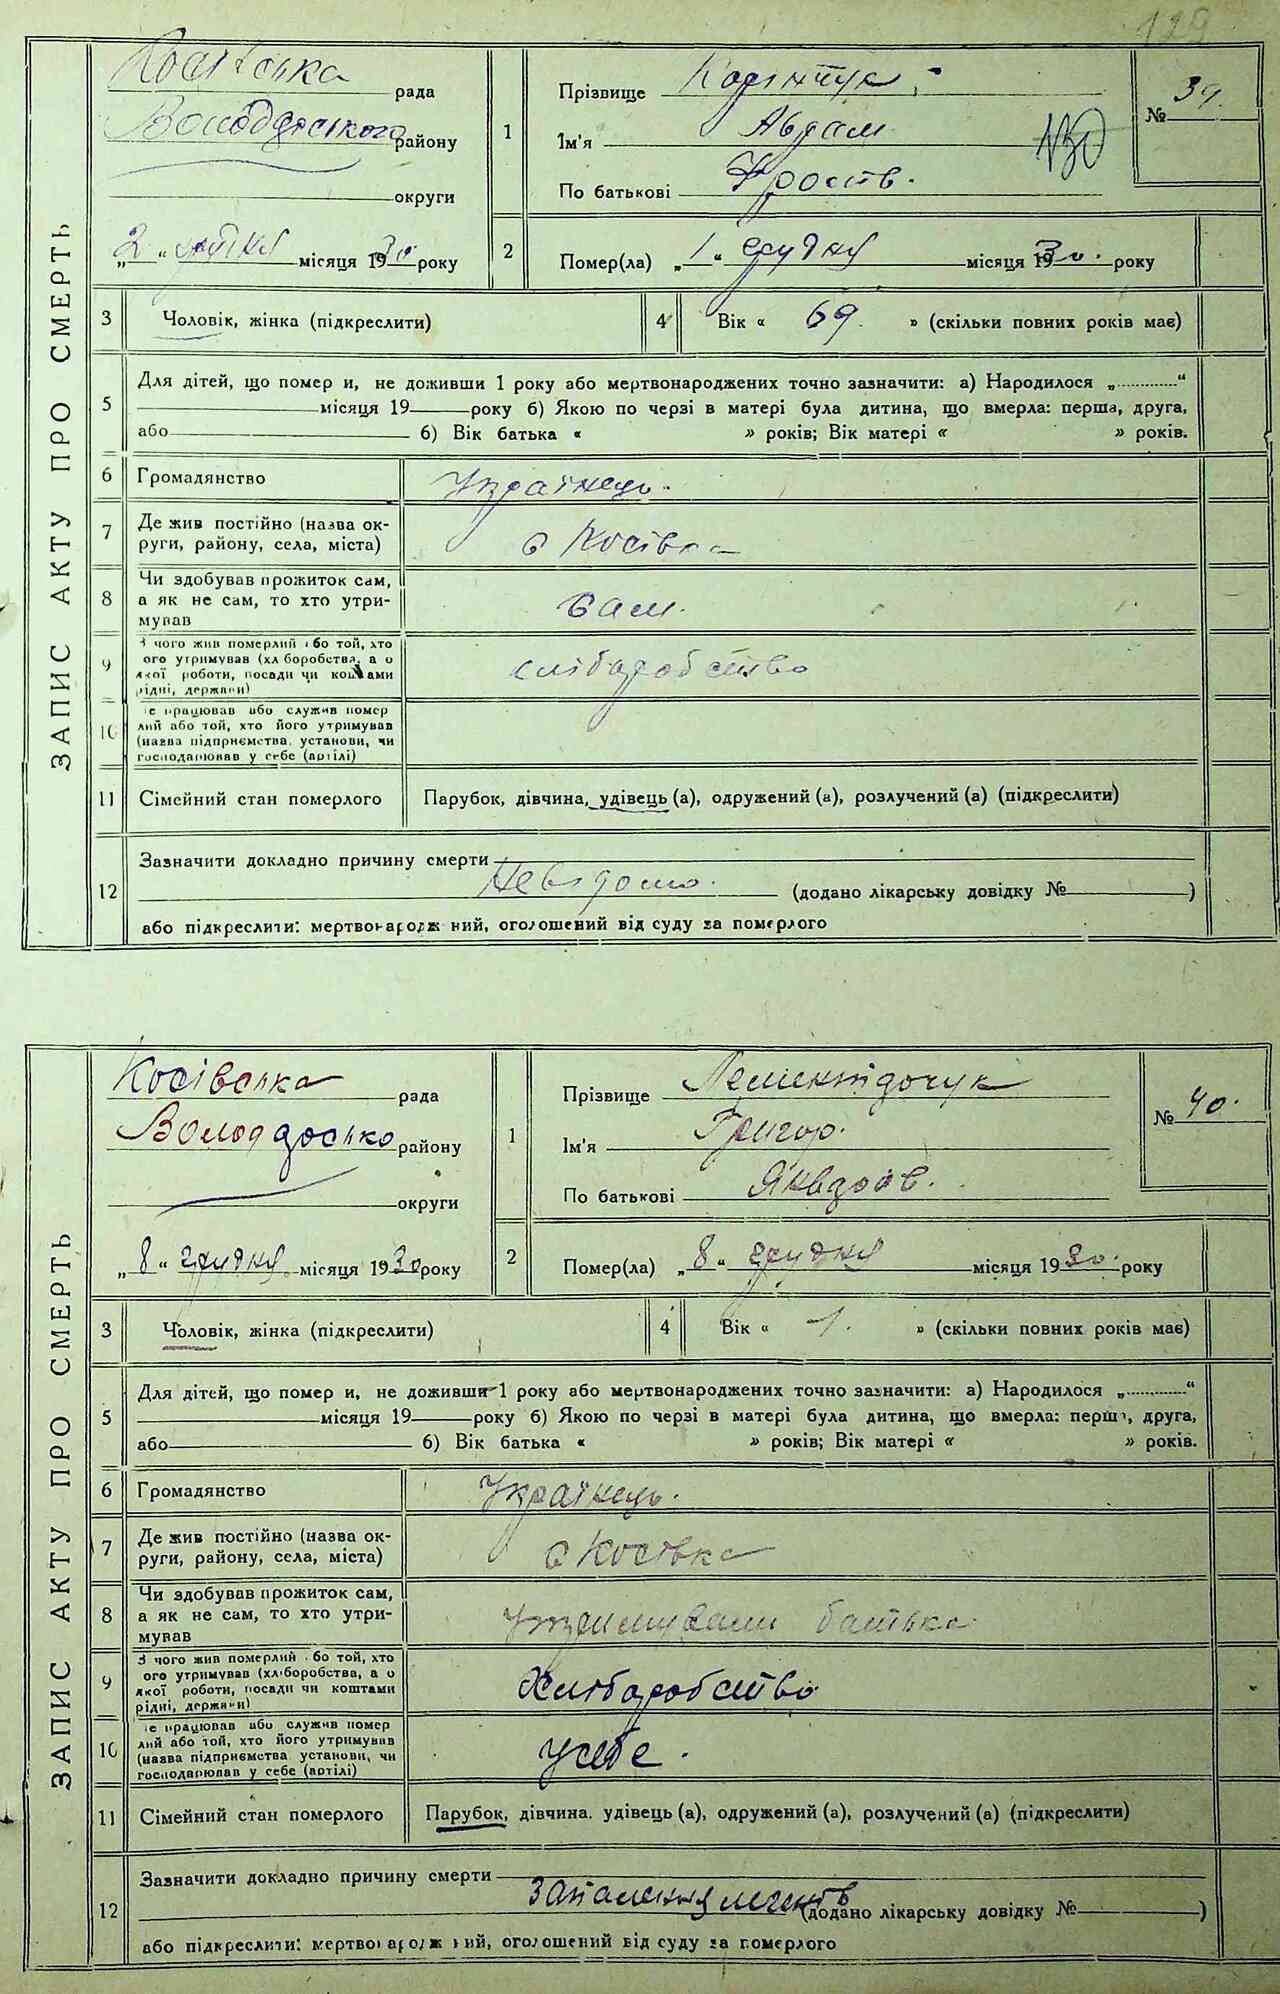 129
ЗАПИС АКТУ ПРО СМЕРТЬ
Косівська рада
Володарського району
округи
„2“ грудня місяця 1930 року
1 Прізвище
Ім'я Абрам
По батькові
№ 39.
2 Помер(ла) „1“ грудня місяця 1930. року
3 Чоловік, жінка (підкреслити)
4 Вік « 69. » (скільки повних років має)
5 Для дітей, що помер и, не доживши 1 року або мертвонароджених точно зазначити: а) Народилося „............“
місяця 19 року б) Якою по черзі в матері була дитина, що вмерла: перша, друга,
або б) Вік батька « » років; Вік матері « » років.
6 Громадянство Українець.
7 Де жив постійно (назва ок-
руги, району, села, міста) с Косівка
8 Чи здобував прожиток сам,
а як не сам, то хто утри-
мував сам.
9 З чого жив померлий або той, хто
ого утримував (хл боробства, а о
якої роботи, посади чи коштами
рідні, держави) хліборобство
10 е працював або служив помер
лий або той, хто його утримував
(назва підприємства, установи, чи
господарював у себе (артілі)
11 Сімейний стан померлого Парубок, дівчина, удівець (а), одружений (а), розлучений (а) (підкреслити)
12 Зазначити докладно причину смерти
Невідомо. (додано лікарську довідку № )
або підкреслити: мертвонародж ний, оголошений від суду за померлого
ЗАПИС АКТУ ПРО СМЕРТЬ
Косівська рада
Володарсько району
округи
„8“ грудня місяця 1930 року
1 Прізвище
Ім'я Григор.
По батькові
№ 40.
2 Помер(ла) „8“ грудня місяця 1930 року
3 Чоловік, жінка (підкреслити)
4 Вік « 1. » (скільки повних років має)
5 Для дітей, що помер и, не доживши 1 року або мертвонароджених точно зазначити: а) Народилося „............“
місяця 19 року б) Якою по черзі в матері була дитина, що вмерла: перша, друга,
або б) Вік батька « » років; Вік матері « » років.
6 Громадянство Українець.
7 Де жив постійно (назва ок-
руги, району, села, міста) с Косівка
8 Чи здобував прожиток сам,
а як не сам, то хто утри-
мував утримували батька
9 З чого жив померлий або той, хто
ого утримував (хліборобства, а о
якої роботи, посади чи коштами
рідні, держави) Хліборобство
10 е працював або служив помер
лий або той, хто його утримував
(назва підприємства установи, чи
господарював у себе (артілі) усебе.
11 Сімейний стан померлого Парубок, дівчина. удівець (а), одружений (а), розлучений (а) (підкреслити)
12 Зазначити докладно причину смерти
Запалення легенів (додано лікарську довідку № )
або підкреслити: мертвонародж ний, оголошений від суду за померлого